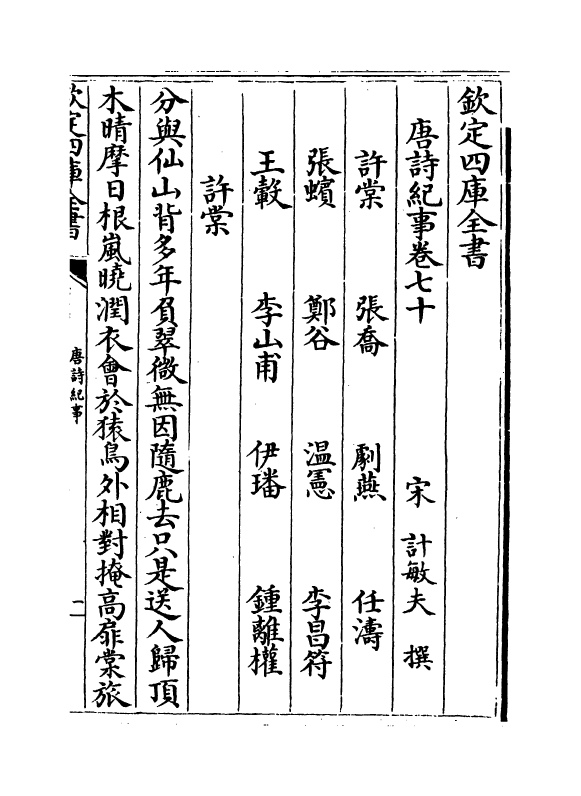 欽定四庫全書
唐詩紀事卷七十　宋　計敏夫　撰
許棠　張喬　劇燕　任濤
張蠙　鄭谷　温憲　李昌符
王轂　李山甫　伊璠　鍾離權
許棠
分與仙山背多年負翠微無因隨鹿去只是送人歸頂
木晴摩日根嵐曉潤衣會於猿鳥外相對掩高扉棠旅
欽定四庫全書
唐詩紀事
一